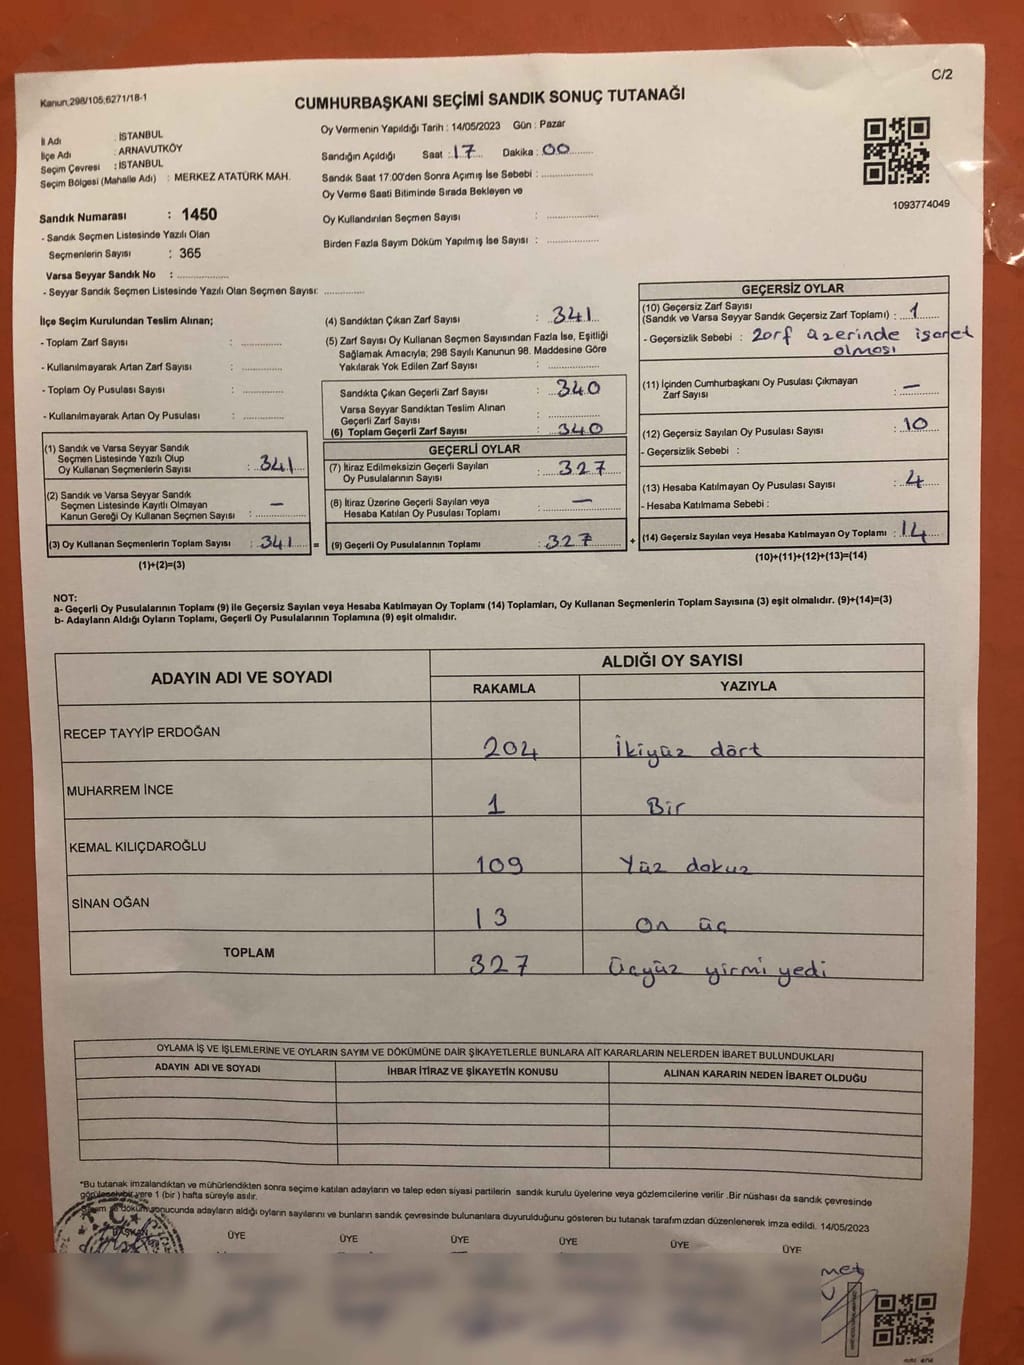 C/2
Kanun,298/105,6271/18-1
CUMHURBAŞKANI SEÇİMİ SANDIK SONUÇ TUTANAĞI
İl Adı : İSTANBUL
İlçe Adı : ARNAVUTKÖY
Seçim Çevresi : İSTANBUL
Seçim Bölgesi (Mahalle Adı) : MERKEZ ATATÜRK MAH.
Sandık Numarası : 1450
- Sandık Seçmen Listesinde Yazılı Olan
Seçmenlerin Sayısı : 365
Varsa Seyyar Sandık No : ..............
- Seyyar Sandık Seçmen Listesinde Yazılı Olan Seçmen Sayısı: ............
Oy Vermenin Yapıldığı Tarih : 14/05/2023 Gün : Pazar
Sandığın Açıldığı Saat : 17 Dakika : 00
Sandık Saat 17:00'den Sonra Açımış İse Sebebi : ..............
Oy Verme Saati Bitiminde Sırada Bekleyen ve
Oy Kullandırılan Seçmen Sayısı : ..............
Birden Fazla Sayım Döküm Yapılmış İse Sayısı : ..............
1093774049
İlçe Seçim Kurulundan Teslim Alınan;
- Toplam Zarf Sayısı : ............
- Kullanılmayarak Artan Zarf Sayısı : ............
- Toplam Oy Pusulası Sayısı : ............
- Kullanılmayarak Artan Oy Pusulası : ............
(1) Sandık ve Varsa Seyyar Sandık
Seçmen Listesinde Yazılı Olup
Oy Kullanan Seçmenlerin Sayısı : 341
(2) Sandık ve Varsa Seyyar Sandık
Seçmen Listesinde Kayıtlı Olmayan
Kanun Gereği Oy Kullanan Seçmen Sayısı : —
(3) Oy Kullanan Seçmenlerin Toplam Sayısı : 341 =
(1)+(2)=(3)
(4) Sandıktan Çıkan Zarf Sayısı : 341
(5) Zarf Sayısı Oy Kullanan Seçmen Sayısından Fazla İse, Eşitliği
Sağlamak Amacıyla; 298 Sayılı Kanunun 98. Maddesine Göre
Yakılarak Yok Edilen Zarf Sayısı : ..............
Sandıkta Çıkan Geçerli Zarf Sayısı : 340
Varsa Seyyar Sandıktan Teslim Alınan
Geçerli Zarf Sayısı : ..............
(6) Toplam Geçerli Zarf Sayısı : 340
GEÇERLİ OYLAR
(7) İtiraz Edilmeksizin Geçerli Sayılan
Oy Pusulalarının Sayısı : 327
(8) İtiraz Üzerine Geçerli Sayılan veya
Hesaba Katılan Oy Pusulası Toplamı : —
(9) Geçerli Oy Pusulalarının Toplamı : 327 +
GEÇERSİZ OYLAR
(10) Geçersiz Zarf Sayısı
(Sandık ve Varsa Seyyar Sandık Geçersiz Zarf Toplamı) : 1
- Geçersizlik Sebebi : Zarf üzerinde işaret
olması
(11) İçinden Cumhurbaşkanı Oy Pusulası Çıkmayan
Zarf Sayısı : —
(12) Geçersiz Sayılan Oy Pusulası Sayısı : 10
- Geçersizlik Sebebi :
(13) Hesaba Katılmayan Oy Pusulası Sayısı : 4
- Hesaba Katılmama Sebebi :
(14) Geçersiz Sayılan veya Hesaba Katılmayan Oy Toplamı : 14
(10)+(11)+(12)+(13)=(14)
NOT:
a- Geçerli Oy Pusulalarının Toplamı (9) ile Geçersiz Sayılan veya Hesaba Katılmayan Oy Toplamı (14) Toplamları, Oy Kullanan Seçmenlerin Toplam Sayısına (3) eşit olmalıdır. (9)+(14)=(3)
b- Adayların Aldığı Oyların Toplamı, Geçerli Oy Pusulalarının Toplamına (9) eşit olmalıdır.
ADAYIN ADI VE SOYADI ALDIĞI OY SAYISI
RAKAMLA YAZIYLA
RECEP TAYYİP ERDOĞAN 204 İkiyüz dört
MUHARREM İNCE 1 Bir
KEMAL KILIÇDAROĞLU 109 Yüz dokuz
SİNAN OĞAN 13 On üç
TOPLAM 327 Üçyüz yirmi yedi
OYLAMA İŞ VE İŞLEMLERİNE VE OYLARIN SAYIM VE DÖKÜMÜNE DAİR ŞİKAYETLERLE BUNLARA AİT KARARLARIN NELERDEN İBARET BULUNDUKLARI
ADAYIN ADI VE SOYADI İHBAR İTİRAZ VE ŞİKAYETİN KONUSU ALINAN KARARIN NEDEN İBARET OLDUĞU
"Bu tutanak imzalandıktan ve mühürlendikten sonra seçime katılan adayların ve talep eden siyasi partilerin sandık kurulu üyelerine veya gözlemcilerine verilir .Bir nüshası da sandık çevresinde
görülebilir yere 1 (bir ) hafta süreyle asılır.
döküm sonucunda adayların aldığı oyların sayılarını ve bunların sandık çevresinde bulunanlara duyurulduğunu gösteren bu tutanak tarafımızdan düzenlenerek imza edildi. 14/05/2023
T.C.
BAŞKAN ÜYE ÜYE ÜYE ÜYE ÜYE ÜYE
met